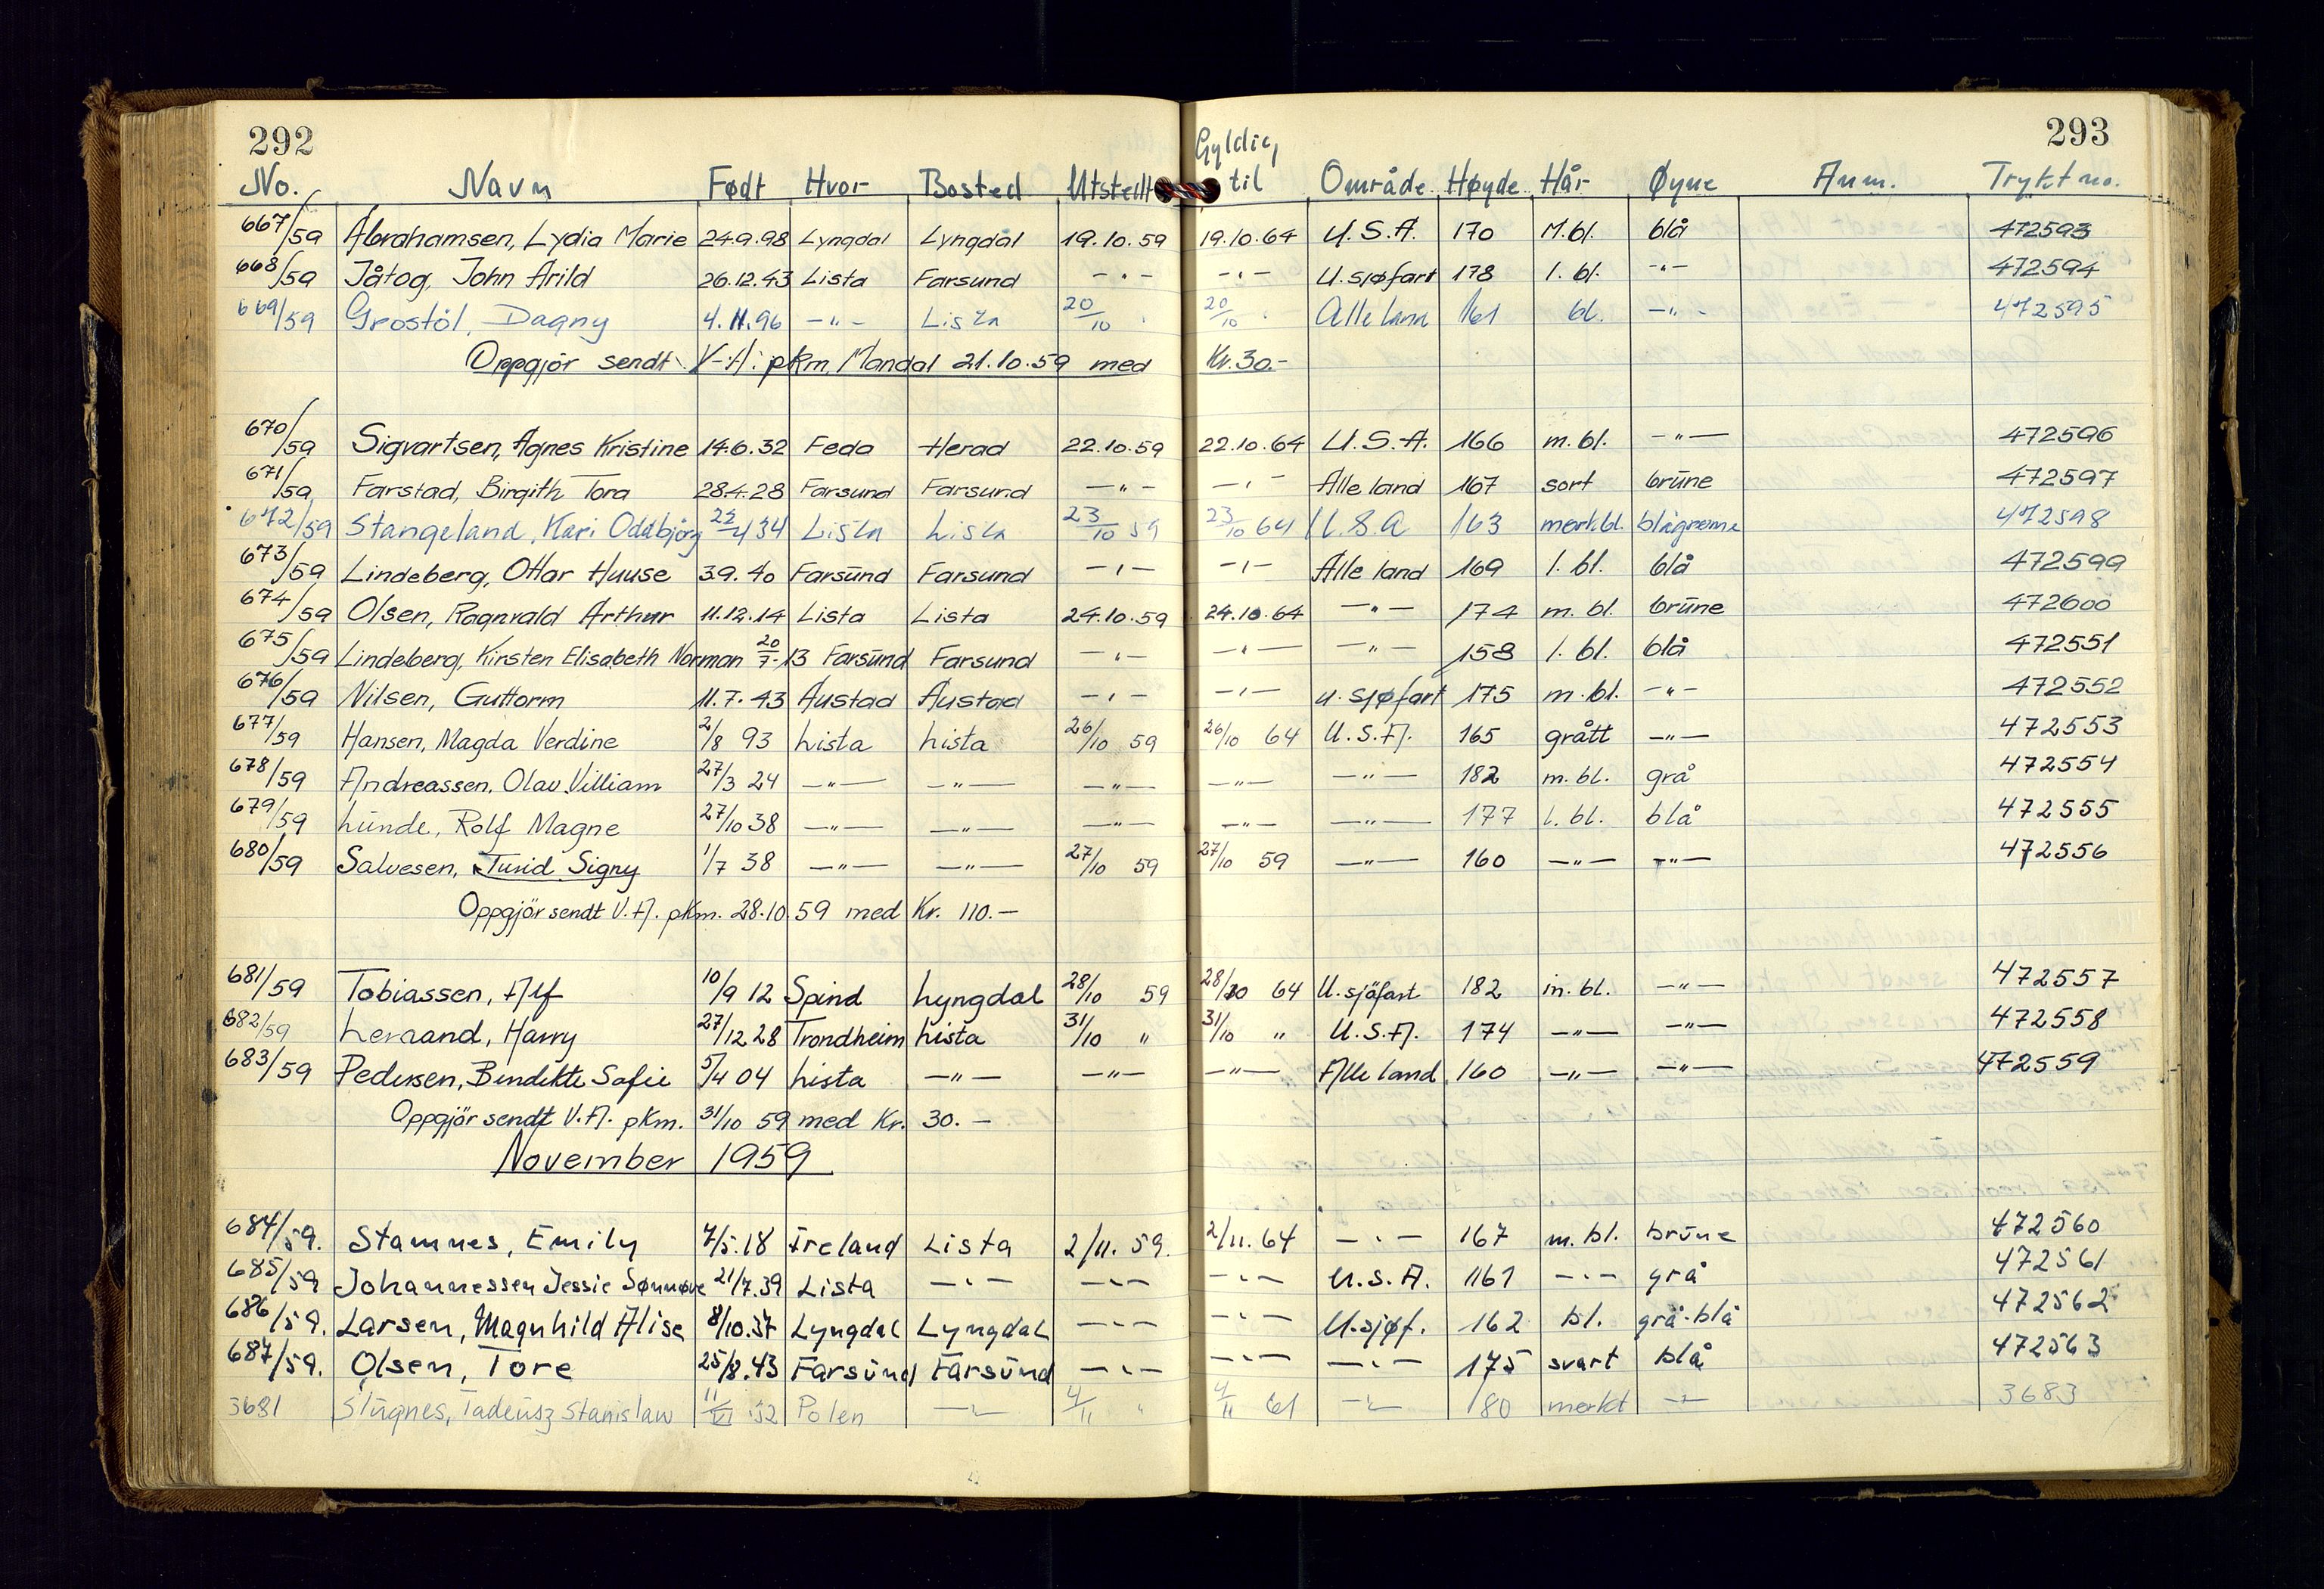 292
293
No. Navn Født Hvor Bosted Utstedt Gyldig til Område Høyde Hår Øyne Anm. Trykt no.
667/59 Abrahamsen, Lydia Marie 24.9.98 Lyngdal Lyngdal 19.10.59 19.10.64 U.S.A. 170 M.bl. blå 472593
668/59 Jåtog, John Arild 26.12.43 Lista Farsund -"- -"- U.sjøfart 178 l. bl. -"- 472594
669/59 Grostöl, Dagny 4.11.96 -"- Lista 20/10 " 20/10 " Alle land 161 bl. -"- 472595
Oppgjör sendt V-A. pkm, Mandal 21.10.59 med Kr. 30.-
670/59 Sigvartsen, Agnes Kristine 14.6.32 Feda Herad 22.10.59 22.10.64 U.S.A. 166 m. bl. -"- 472596
671/59 Farstad, Birgith Tora 28.4.28 Farsund Farsund -"- -"- Alle land 167 sort brune 472597
672/59 Stangeland, Kari Oddbjörg 22/4 34 Lista Lista 23/10 59 23/10 64 U.S.A 163 mørkbl. blågrønne 472598
673/59 Lindeberg, Ottar Huuse 3.9.40 Farsund Farsund -"- -"- Alle land 169 l. bl. blå 472599
674/59 Olsen, Ragnvald Arthur 11.12.14 Lista Lista 24.10.59 24.10.64 -"- 174 m. bl. brune 472600
675/59 Lindeberg, Kirsten Elisabeth Norman 20/7-13 Farsund Farsund -"- -"- -"- 158 l. bl. blå 472551
676/59 Nilsen, Guttorm 11.7.43 Austad Austad -"- -"- u. sjøfart 175 m. bl. -"- 472552
677/59 Hansen, Magda Verdine 2/8 93 Lista Lista 26/10 59 26/10 64 U.S.A. 165 grått -"- 472553
678/59 Andreassen, Olav Villiam 27/3 24 -"- -"- -"- -"- -"- 182 m. bl. grå 472554
679/59 Lunde, Rolf Magne 27/10 38 -"- -"- -"- -"- -"- 177 l. bl. blå 472555
680/59 Salvesen, Turid Signy 1/7 38 -"- -"- 27/10 59 27/10 59 -"- 160 -"- -"- 472556
Oppgjör sendt V.A. pkm. 28.10.59 med Kr. 110.-
681/59 Tobiassen, Alf 10/9 12 Spind Lyngdal 28/10 59 28/10 64 U. sjöfart 182 m. bl. -"- 472557
682/59 Leraand, Harry 27/12 28 Trondheim Lista 31/10 " 31/10 " U.S.A. 174 -"- -"- 472558
683/59 Pedersen, Bendikte Sofie 5/4 04 Lista -"- -"- -"- Alle land 160 -"- -"- 472559
Oppgjör sendt V.A. pkm. 31/10 59 med Kr. 30.-
November 1959
684/59. Stamnes, Emily 7/5.18 Ireland Lista 2/11.59. 2/11.64 -"- 167 m. bl. brune 472560
685/59 Johannessen Jessie Sønnøve 21/7.39 Lista -"- -"- -"- U.S.A. 161 -"- grå 472561
686/59. Larsen, Magnhild Alise 8/10.37 Lyngdal Lyngdal -"- -"- U.sjøf. 162 bl. grå-blå 472562
687/59. Olsen, Tore 25/8.43 Farsund Farsund -"- -"- -"- 175 svart blå 472563
3681 Tadeusz Stanislaw 11/VI 32 Polen -"- 4/11 " 4/11 61 -"- 180 mørkt -"- 3683